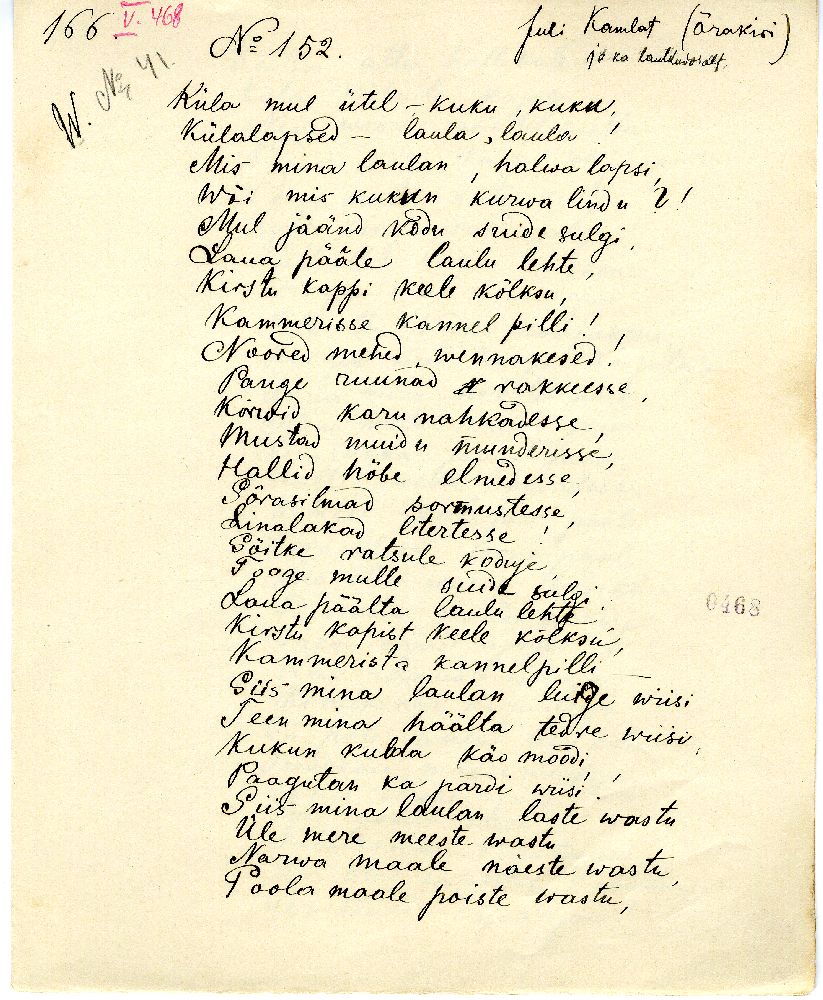 166. V. 468
Juli Kamlat (ärakiri)
jo ka
№ 152.
W. № 41.
Küla mul ütel – kuku, kuku,
Külalapsed – laula, laula!
Mis mina laulan, halwa lapsi,
Wõi mis kukun kurwa lindu?!
Mul jäänd kodu suide sulgi,
Laua pääle laulu lehte,
Kirstu kappi keele kõlksu,
Kammerisse kannel pilli!
Noored mehed, wennakesed!
Pange ruunad rakkeesse,
Kõrwid karu nahkadesse,
Mustad muidu munderisse,
Hallid hõbe elmedesse,
Sõrasilmad sormustesse,
Linalakad litertesse!
Sõitke ratsule koduje,
Tooge mulle suide sulgi,
Laua päälta laulu lehte
Kirstu kapist keele kõlksu,
Kammerista kannelpilli
Siis mina laulan luige wiisi
Teen mina häälta tedre wiisi,
Kukun kulda käo moodi
Paagutan ka pardi wiisi!
Siis mina laulan laste wastu
Üle mere meeste wastu
Narwa maale naeste wastu,
Poola maale poiste wastu,
0468